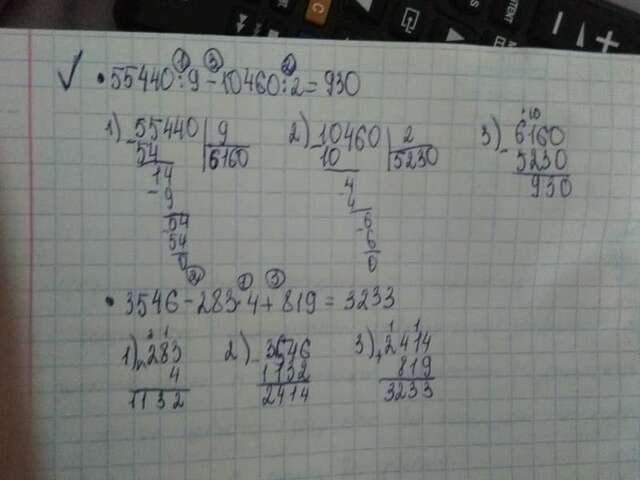 ✓ • 55440 : 9 - 10460 : 2 = 930
1) 55440 | 9
- 54 | 6160
14
- 9
54
- 54
0
2) 10460 | 2
- 10 | 5230
4
- 4
6
- 6
0
3) 6160
- 5230
930
• 3546 - 283 · 4 + 819 = 3233
1) 283
× 4
1132
2) 3546
- 1132
2414
3) 2414
+ 819
3233